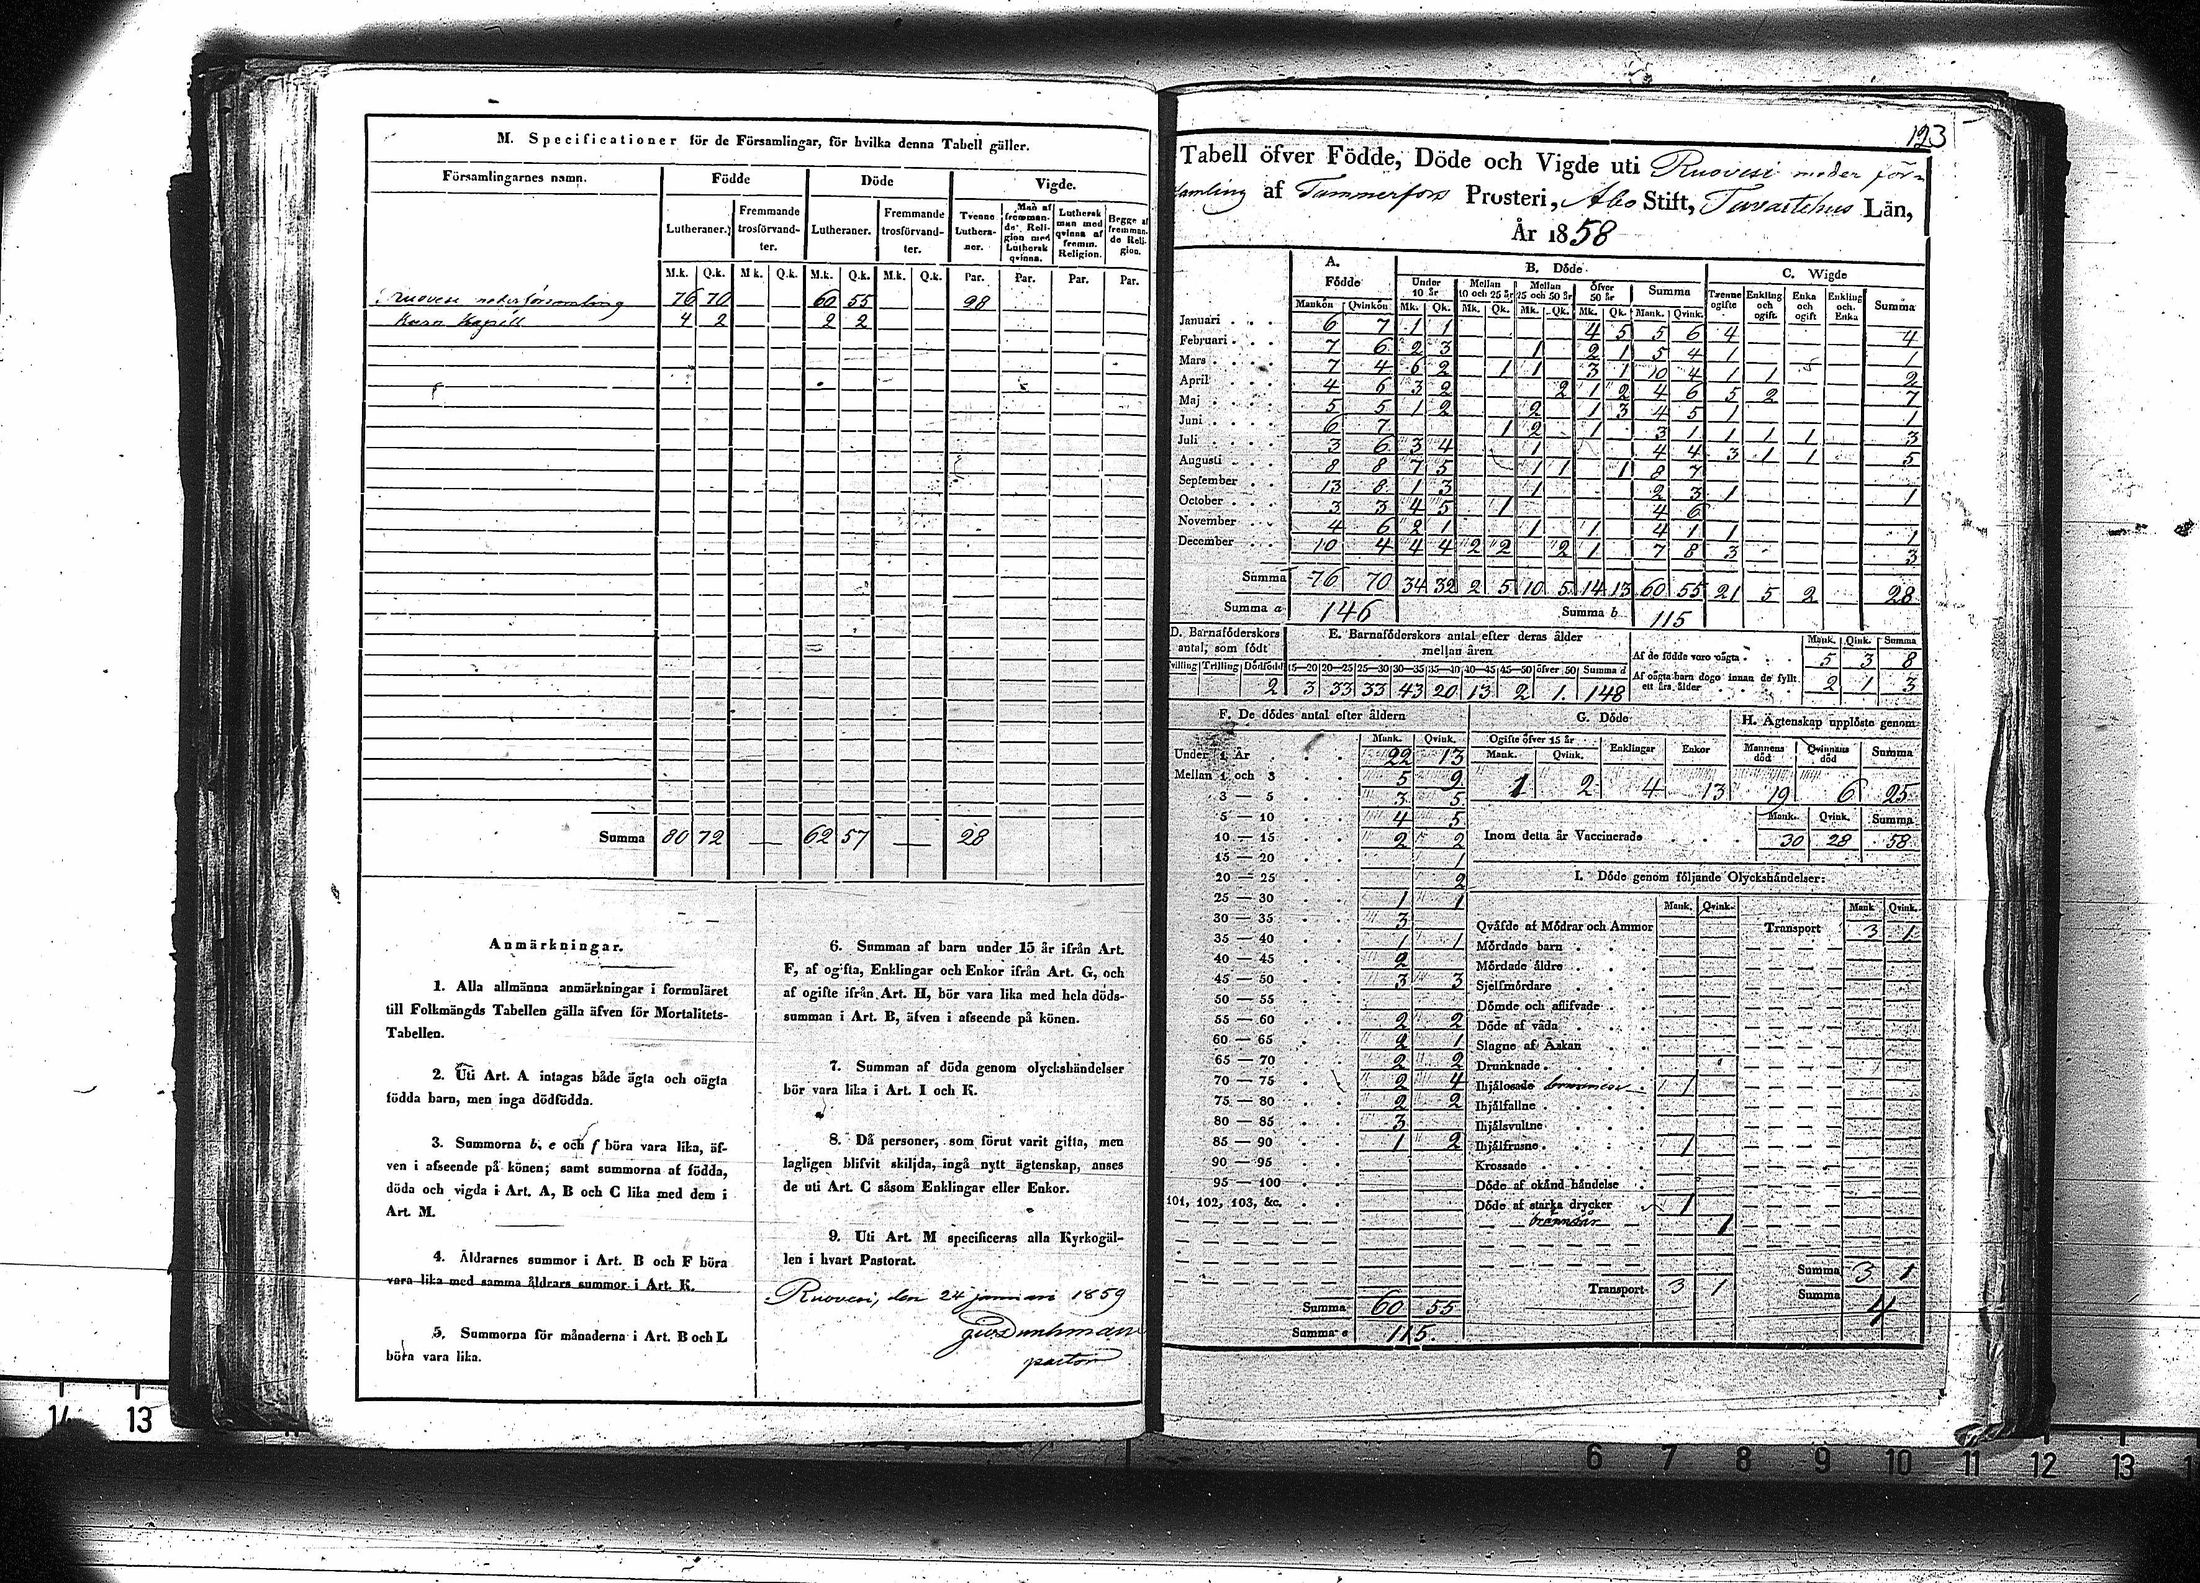 M. Specificationer för de Församlingar, för hvilka denna Tabell gäller.
Församlingarnes namn. Födde Döde Vigde.
Lutheraner. Fremmande trosförvandter. Lutheraner. Fremmande trosförvandter. Tvenne Lutheraner. Man af fremmande Religion med Luthersk qvinna. Luthersk man med qvinna af fremm. Religion. Begge af fremmande Religion.
M.k. Q.k. M.k. Q.k. M.k. Q.k. M.k. Q.k. Par. Par. Par. Par.
Ruovesi moderförsamling 76 70 60 55 28
Kuru Kapell 4 2 2 2
Summa 80 72 — 62 57 — 28
Anmärkningar.
1. Alla allmänna anmärkningar i formuläret
till Folkmängds Tabellen gälla äfven för Mortalitets-
Tabellen.
2. Uti Art. A intagas både ägta och oägta
födda barn, men inga dödfödda.
3. Summorna b, e och f böra vara lika, äf-
ven i afseende på könen; samt summorna af födda,
döda och vigda i Art. A, B och C lika med dem i
Art. M.
4. Åldrarnes summor i Art. B och F böra
vara lika med samma åldrars summor i Art. K.
5. Summorna för månaderna i Art. B och L
böra vara lika.
6. Summan af barn under 15 år ifrån Art.
F, af ogifta, Enklingar och Enkor ifrån Art. G, och
af ogifte ifrån Art. H, bör vara lika med hela döds-
summan i Art. B, äfven i afseende på könen.
7. Summan af döda genom olyckshändelser
bör vara lika i Art. I och K.
8. Då personer, som förut varit gifta, men
lagligen blifvit skiljda, ingå nytt ägtenskap, anses
de uti Art. C såsom Enklingar eller Enkor.
9. Uti Art. M specificeras alla Kyrkogäl-
len i hvart Pastorat.
Ruovesi, den 24 januari 1859
pastor
123
Tabell öfver Födde, Döde och Vigde uti Ruovesi moder för-
samling af Tammerfors Prosteri, Åbo Stift, Tavastehus Län,
År 1858
A. Födde B. Döde C. Wigde
Under 10 år Mellan 10 och 25 år Mellan 25 och 50 år Öfver 50 år Summa Tvenne ogifte Enkling och ogift. Enka och ogift Enkling och Enka Summa
Mankön Qvinkön Mk. Qk. Mk. Qk. Mk. Qk. Mk. Qk. Mank. Qvink.
Januari 6 7 1 1 4 5 5 6 4 4
Februari 7 6 2 3 1 2 1 5 4 1 1
Mars 7 4 6 2 1 1 3 1 10 4 1 1 2
April 4 6 3 2 2 1 2 4 6 5 2 7
Maj 5 5 1 2 2 1 3 4 5 1 1
Juni 6 7 1 2 1 3 1 1 1 1 3
Juli 3 6 3 4 1 4 4 3 1 1 5
Augusti 8 8 7 5 1 1 1 8 7
September 13 8 1 3 1 2 3 1 1
October 3 3 4 5 1 4 6
November 4 6 2 1 1 1 4 1 1 1
December 10 4 4 4 2 2 2 1 7 8 3 3
Summa 76 70 34 32 2 5 10 5 14 13 60 55 21 5 2 28
Summa a 146 Summa b 115
D. Barnaföderskors antal, som födt E. Barnaföderskors antal efter deras ålder mellan åren
Tvilling Trilling Dödfödd 15—20 20—25 25—30 30—35 35—40 40—45 45—50 öfver 50 Summa d
2 3 33 33 43 20 13 2 1. 148
Mank. Qink. Summa
Af de födde voro oägta 5 3 8
Af oägta barn dogo innan de fyllt ett års ålder 2 1 3
F. De dödes antal efter åldern
Mank. Qvink.
Under 1 År 22 13
Mellan 1 och 3 5 9
3 — 5 3 5
5 — 10 4 5
10 — 15 2 2
15 — 20 1
20 — 25 2
25 — 30 1 1
30 — 35 3
35 — 40 1 1
40 — 45 2
45 — 50 3 3
50 — 55
55 — 60 2 2
60 — 65 2 1
65 — 70 2 2
70 — 75 2 4
75 — 80 2 2
80 — 85 3
85 — 90 1 2
90 — 95
95 — 100
101, 102, 103, &c.
Summa 60 55
Summa e 115.
G. Döde
Ogifte öfver 15 år Enklingar Enkor
Mank. Qvink.
1 2 4 13
H. Ägtenskap upplöste genom
Mannens död Qvinnans död Summa
19 6 25
Mank. Qvink. Summa
Inom detta år Vaccinerade 30 28 58
I. Döde genom följande Olyckshändelser:
Mank. Qvink. Mank Qvink.
Qväfde af Mödrar och Ammor Transport 3 1
Mördade barn
Mördade äldre
Sjelfmördare
Dömde och aflifvade
Döde af våda
Slagne af Åskan
Drunknade
Ihjälosade 1
Ihjälfallne
Ihjälsvultne
Ihjälfrusne 1
Krossade
Döde af okänd händelse
Döde af starka drycker 1
1
Transport 3 1
Summa 3 1
Summa 4
6 7 8 9 10 11 12 13
14 13